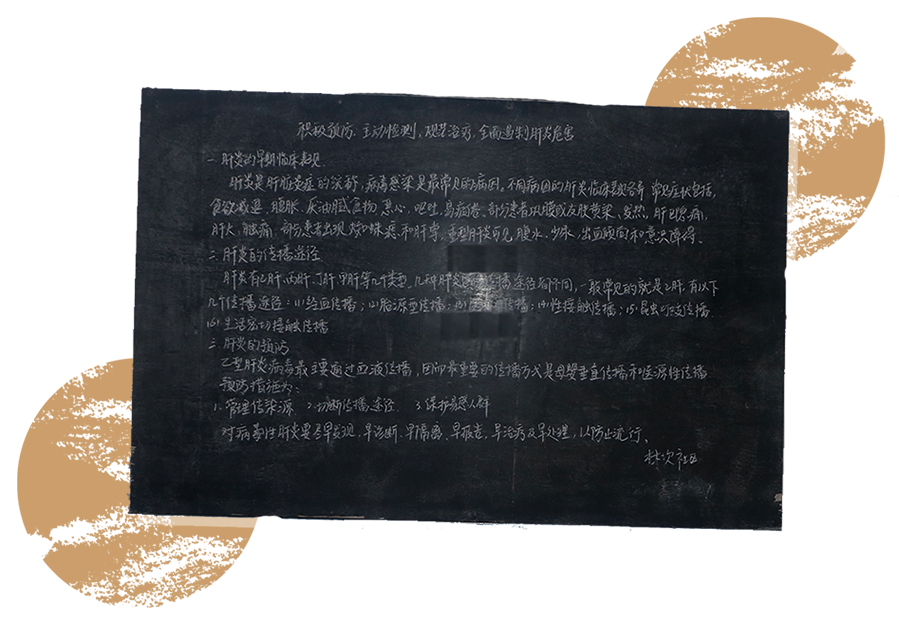 积极预防、主动检测、规范治疗、全面遏制肝炎危害
一、肝炎的早期临床表现
肝炎是肝脏炎症的统称,病毒感染是最常见的病因,不同病因的肝炎临床表现各异 常见症状包括,
食欲减退、腹胀、厌油腻食物、恶心、呕吐、易疲倦、部分患者巩膜或皮肤黄染、发热、肝区隐痛,
肝大、触痛、部分患者出现 和肝掌、重型肝炎可见腹水、少尿、出血倾向和意识障碍。
二、肝炎的传播途径
肝炎有乙肝、丙肝、丁肝、甲肝等几个类型,几种肝炎 传播途径各不同,一般常见的就是乙肝,有以下
几个传播途径:(1)经血传播;(2)胎源性传播;(3) 传播;(4)性接触传播;(5)昆虫叮咬传播
(6)生活密切接触传播
三、肝炎的预防
乙型肝炎病毒最主要通过血液传播,因而最重要的传播方式是母婴垂直传播和医源性传播
预防措施为:
1.管理传染源 2.切断传播途径 3.保护易感人群
对病毒性肝炎要尽早发现、早诊断、早隔离、早报告、早治疗及早处理,以防止流行。
社区